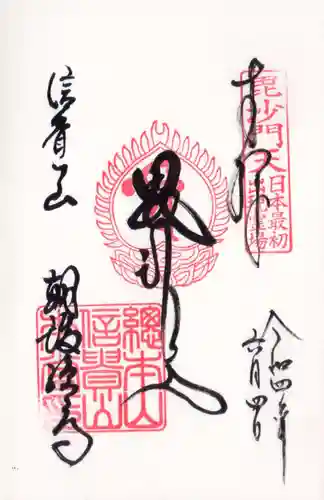 奉拝
毘沙門天
日本最初
出現霊場
令和四年
六月四日
毘沙門天
總本山
信貴山
信貴山
朝護孫子寺